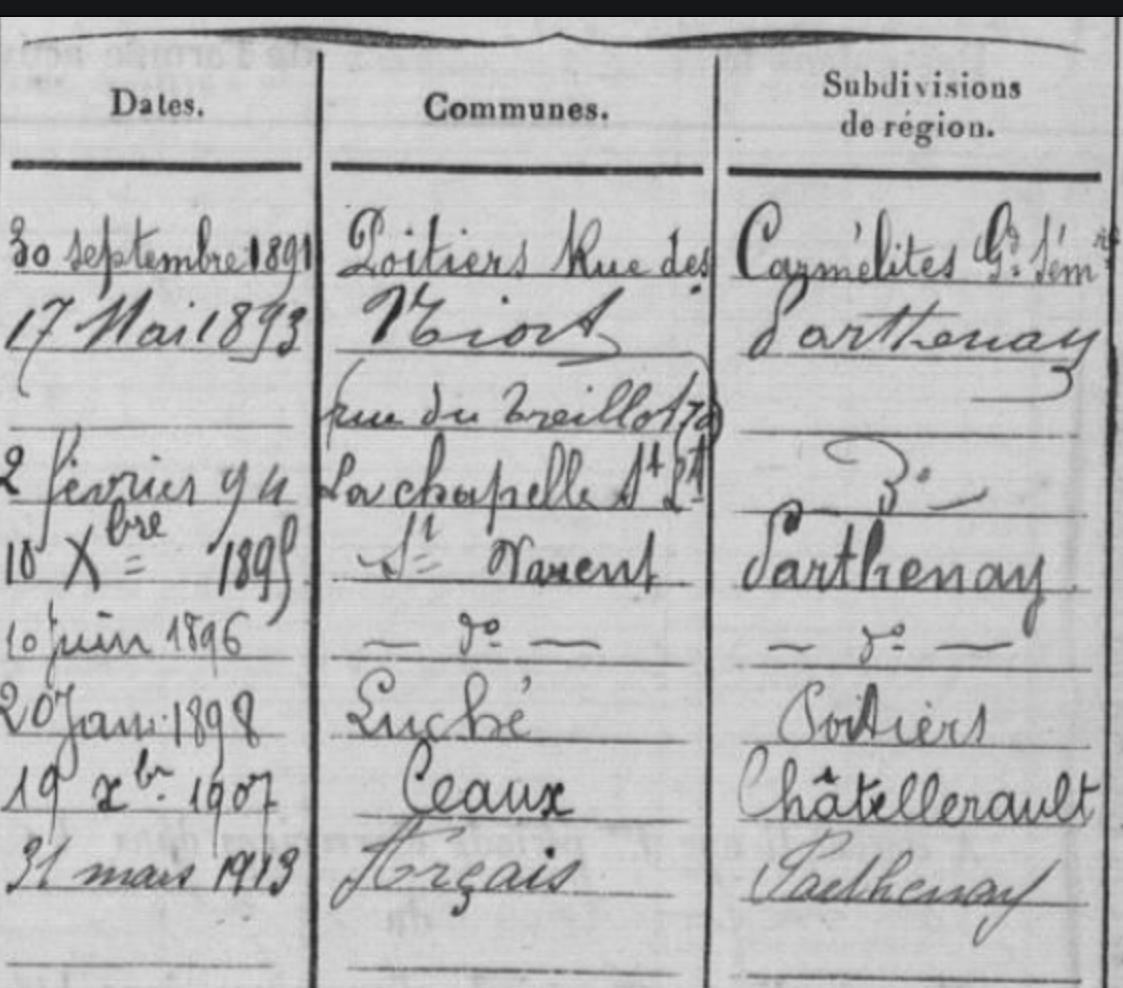 Dates. Communes. Subdivisions
de région.
30 septembre 1891 Poitiers Rue des Carmélites Gd. Sémre
17 Mai 1893 Niort Parthenay
(rue du Treillot 70)
2 février 94 La chapelle St Lt do
10 Xbre 1895 St Varent Parthenay
10 juin 1896 — do — — do —
20 Janv. 1898 Luché Poitiers
19 xbr. 1907 Ceaux Châtellerault
31 mars 1913 Arçais Parthenay